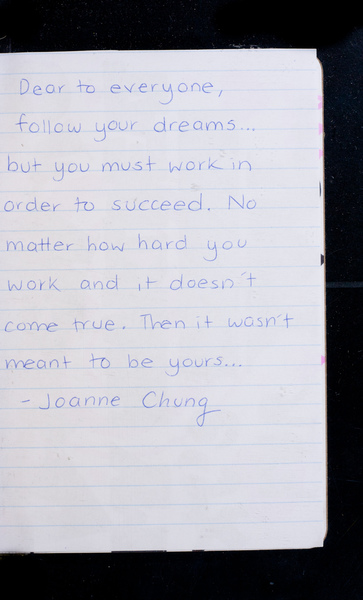 Dear to everyone,
follow your dreams...
but you must work in
order to succeed. No
matter how hard you
work and it doesn't
come true. Then it wasn't
meant to be yours...
- Joanne Chung